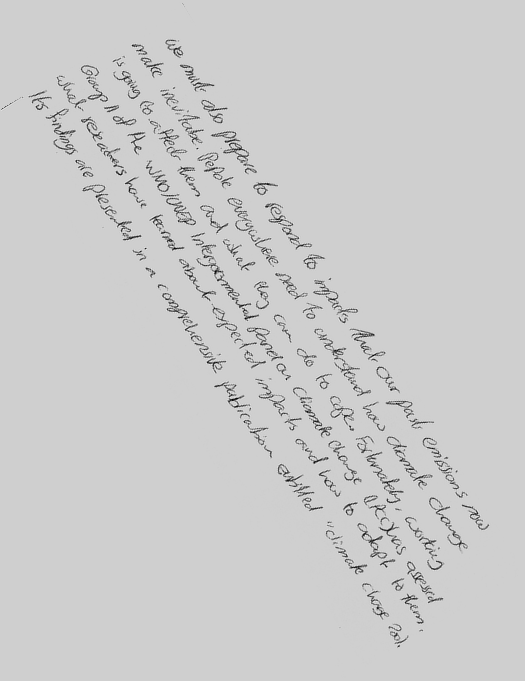 we must also prepare to respond to impacts that our past emissions now
make inevitabe. Pepole everywhere need to understand how climate change
is going to affect them and what they can do to cope. Fortunately, working
Group II of the WMO/UNEP Intergovernmental Panel on climate change (IPCC) has assessed
what reseachers have learned about expected impacts and how to adapt to them.
Its findings are presented in a comprehensive publication entitled "climate chage 2001.